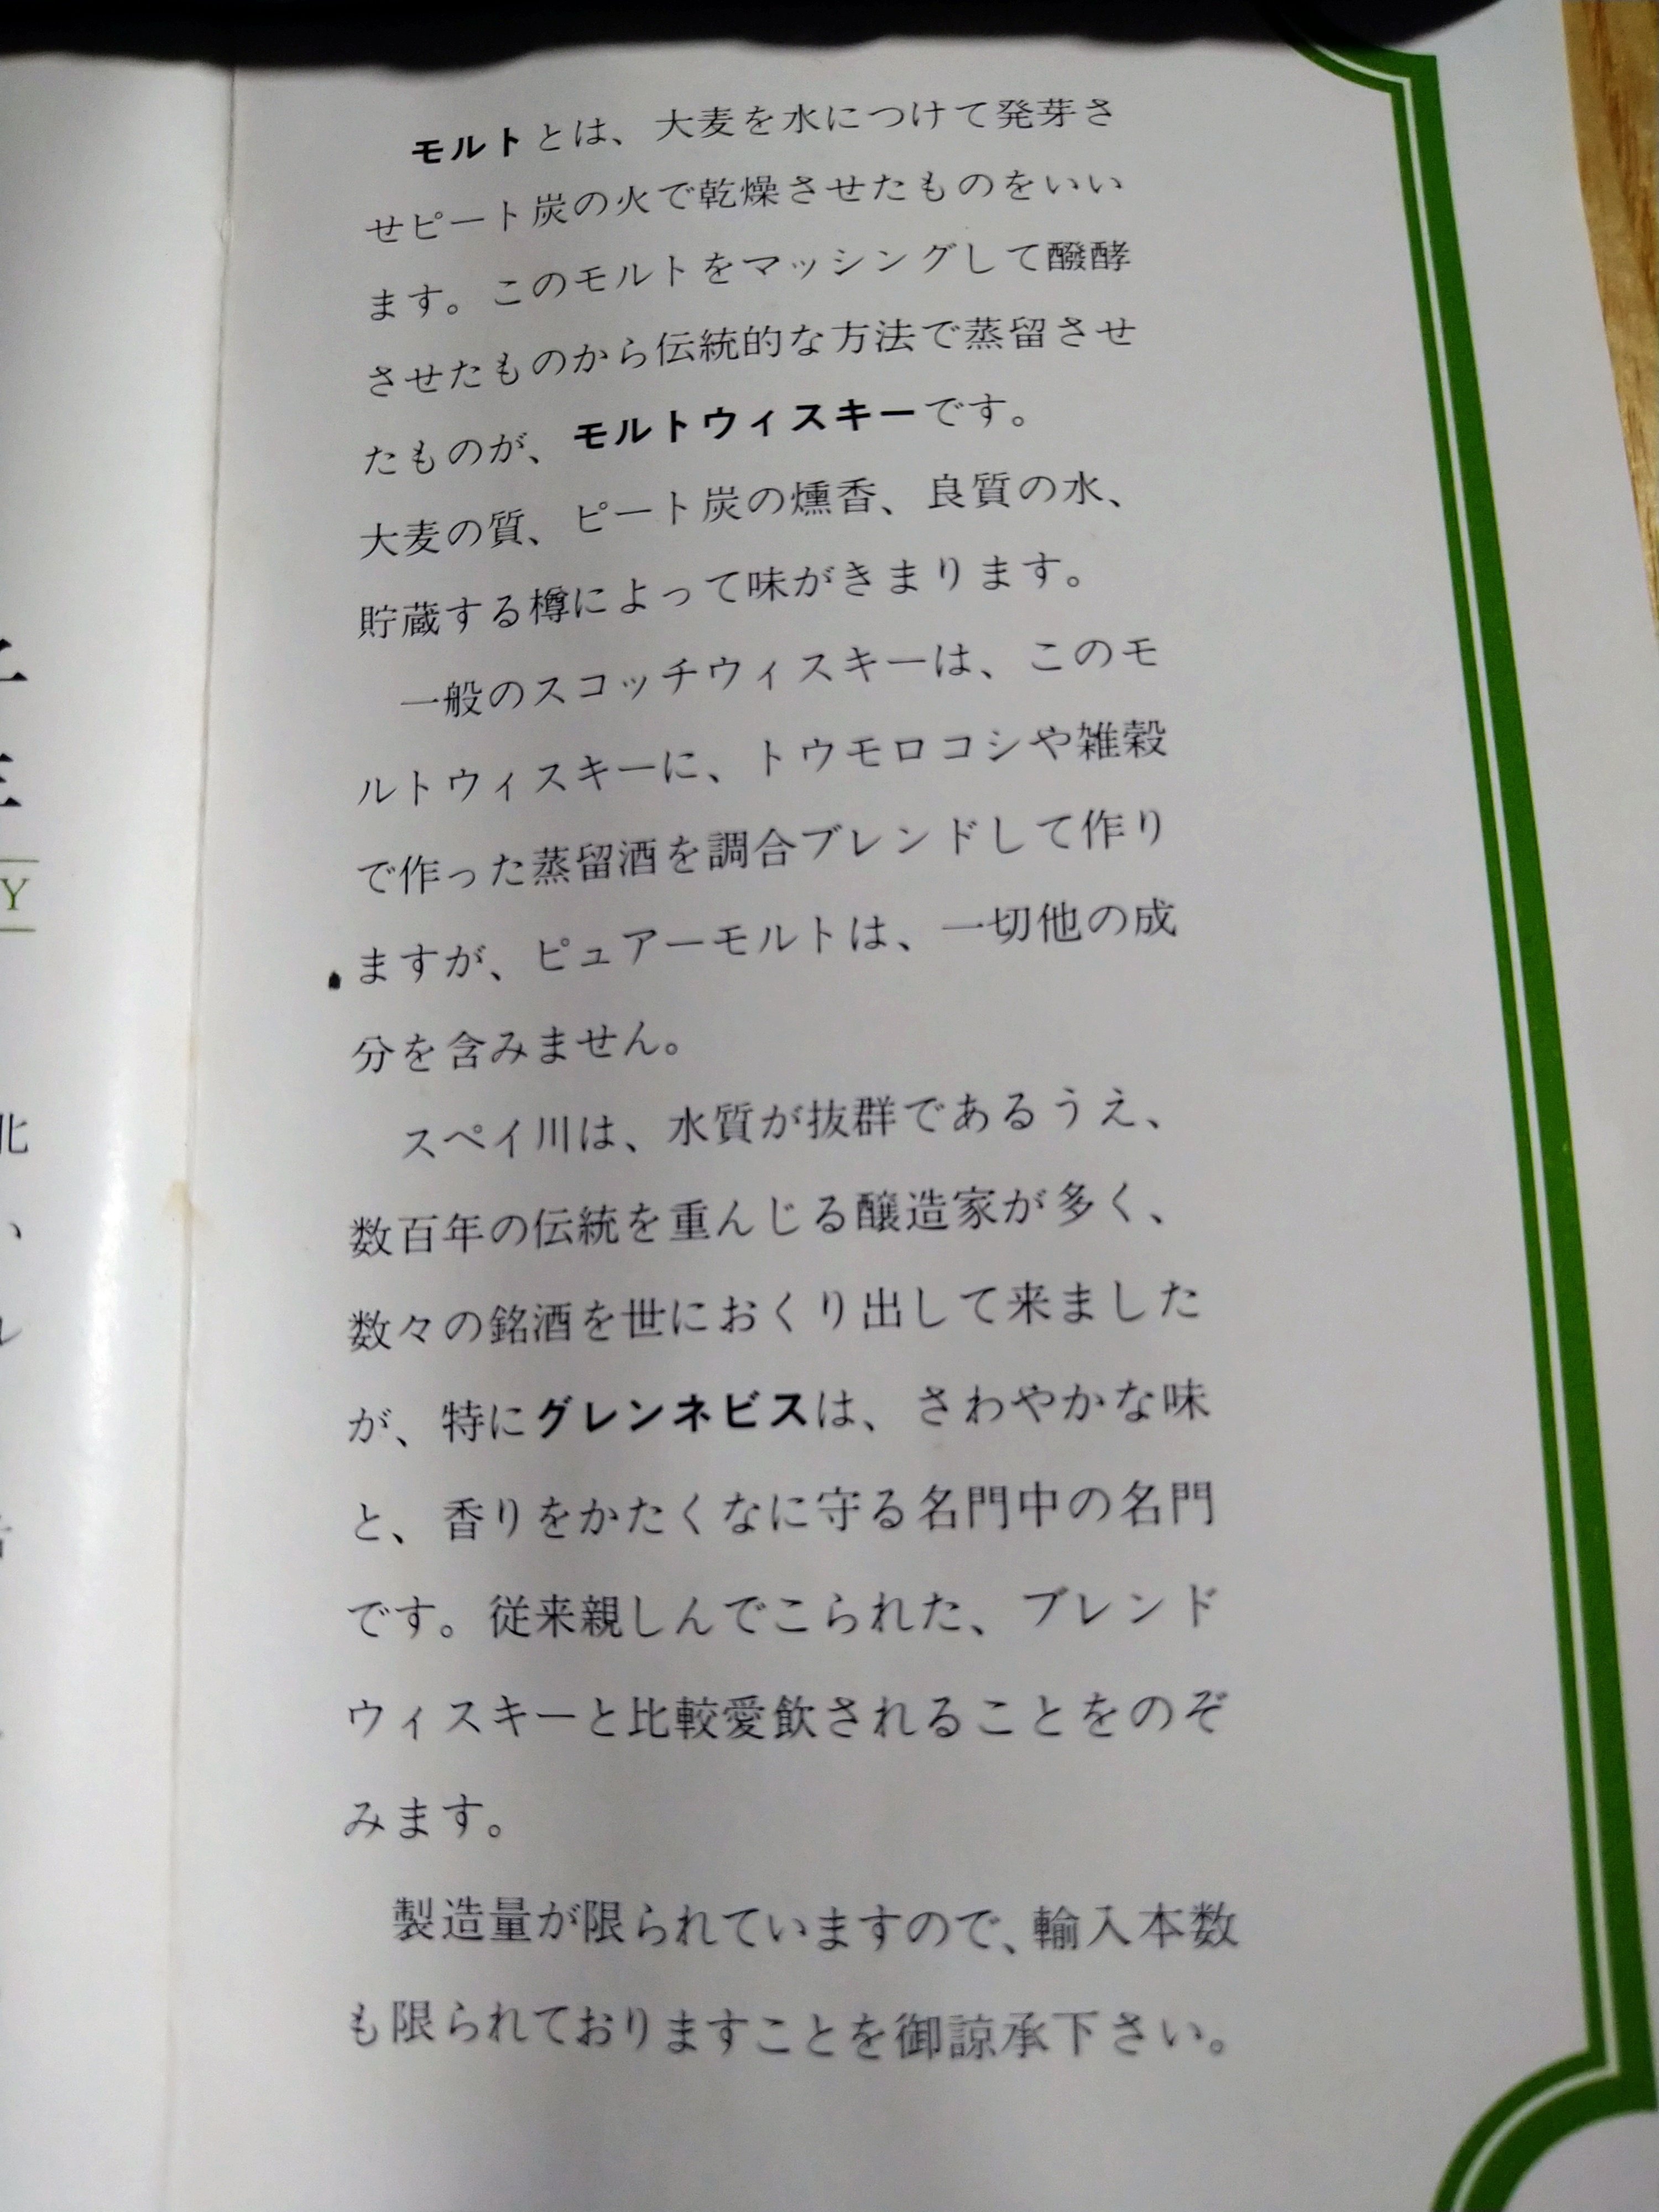 モルトとは、大麦を水につけて発芽さ
せピート炭の火で乾燥させたものをいい
ます。このモルトをマッシングして醱酵
させたものから伝統的な方法で蒸留させ
たものが、モルトウィスキーです。
大麦の質、ピート炭の燻香、良質の水、
貯蔵する樽によって味がきまります。
一般のスコッチウィスキーは、このモ
ルトウィスキーに、トウモロコシや雑穀
で作った蒸留酒を調合ブレンドして作り
ますが、ピュアーモルトは、一切他の成
分を含みません。
スペイ川は、水質が抜群であるうえ、
数百年の伝統を重んじる醸造家が多く、
数々の銘酒を世におくり出して来ました
が、特にグレンネビスは、さわやかな味
と、香りをかたくなに守る名門中の名門
です。従来親しんでこられた、ブレンド
ウィスキーと比較愛飲されることをのぞ
みます。
製造量が限られていますので、輸入本数
も限られておりますことを御諒承下さい。
Y
北